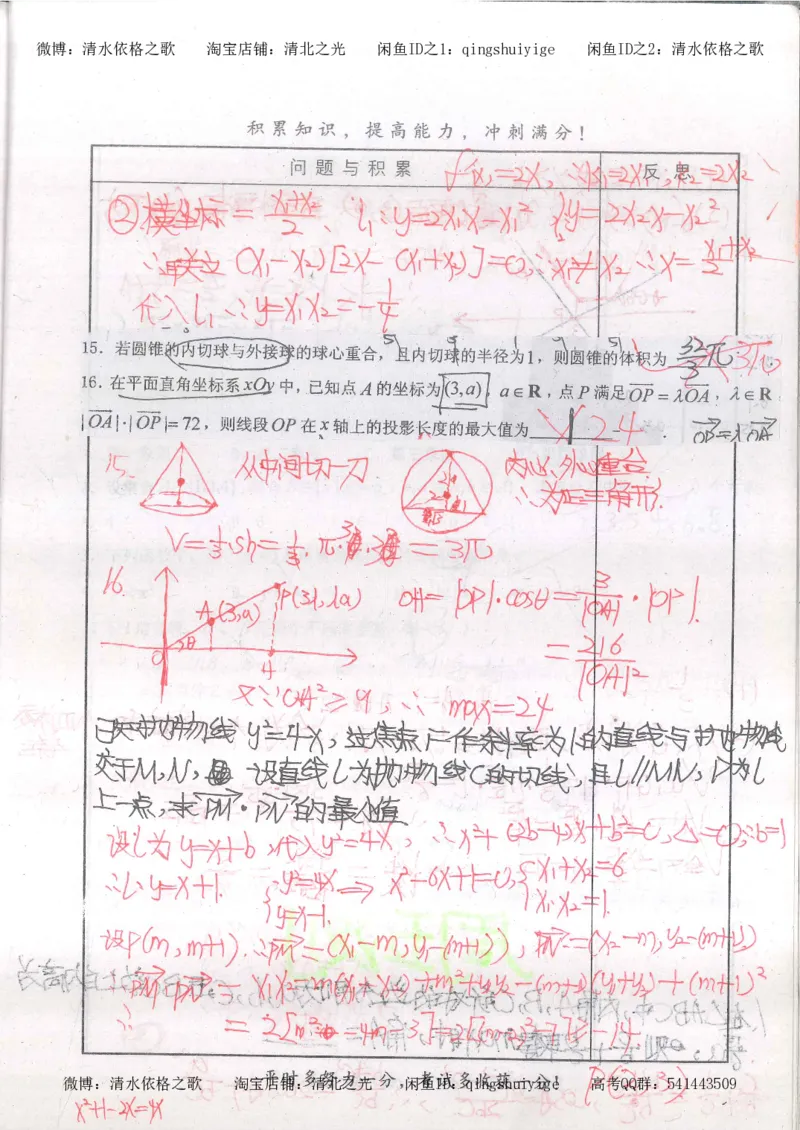 微博：清水依格之歌 淘宝店铺：清北之光 闲鱼ID之1：qingshuiyige 闲鱼ID之2：清水依格之歌
积累知识，提高能力，冲刺满分！
问题与积累 反思
f'(x)=2X, ∴k1=2X1, k2=2X2
②横坐标= (X1+X2)/2、 l1:y=2X1X-X1² y=2X2X-X2²
∴联立 (X1-X2)[2X-(X1+X2)]=0, ∵X1≠X2 ∴X=(X1+X2)/2
代入l1 ∴y=X1X2=-1/4
15．若圆锥的内切球与外接球的球心重合，且内切球的半径为1，则圆锥的体积为 32/3π 3π
16．在平面直角坐标系xOy中，已知点A的坐标为(3,a)，a∈R，点P满足OP=λOA，λ∈R
|OA|·|OP|=72，则线段OP在x轴上的投影长度的最大值为 24 ． OP=λOA
15. 从中间切一刀 内心、外心重合
∴为正三角形.
V=1/3·sh=1/3·π·3·3=3π
16. A(3,a) P(3λ,λa) OH=|OP|·cosθ=3/|OA|·|OP|
=216/|OA|²
又∵OA²≥9, ∴ max=24
已知抛物线 y²=4X, 过焦点F作斜率为1的直线与抛物线
交于M,N, 设直线l为抛物线C的切线, 且l//MN, P为l
上一点, 求PM·PN的最小值
设l为y=X+b,代入y²=4X, ∴X²+(2b-4)X+b²=0, △=0,∴b=1
∴l:y=X+1. {y²=4X y=X-1. ⇒ X²-6X+1=0, {X1+X2=6 X1X2=1.
设P(m,m+1). ∴PM=(X1-m,y1-(m+1)), PN=(X2-m,y2-(m+1))
∴PM·PN=X1X2-m(X1+X2)+m²+y1y2-(m+1)(y1+y2)+(m+1)²
∴ =2[m²-4m-3]=2[(m-2)²-7]≥-14
平时多努力一分，考试多收获一分！
微博：清水依格之歌 淘宝店铺：清北之光 闲鱼ID之1：qingshuiyige 高考QQ群：541443509
X²+1-2X=4X